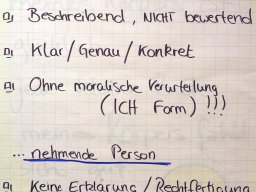 Beschreibend, NICHT bewertend
Klar/Genau/Konkret
Ohne moralische Verurteilung
(ICH Form) !!!
... nehmende Person
Keine Erklärung / Rechtfertigung